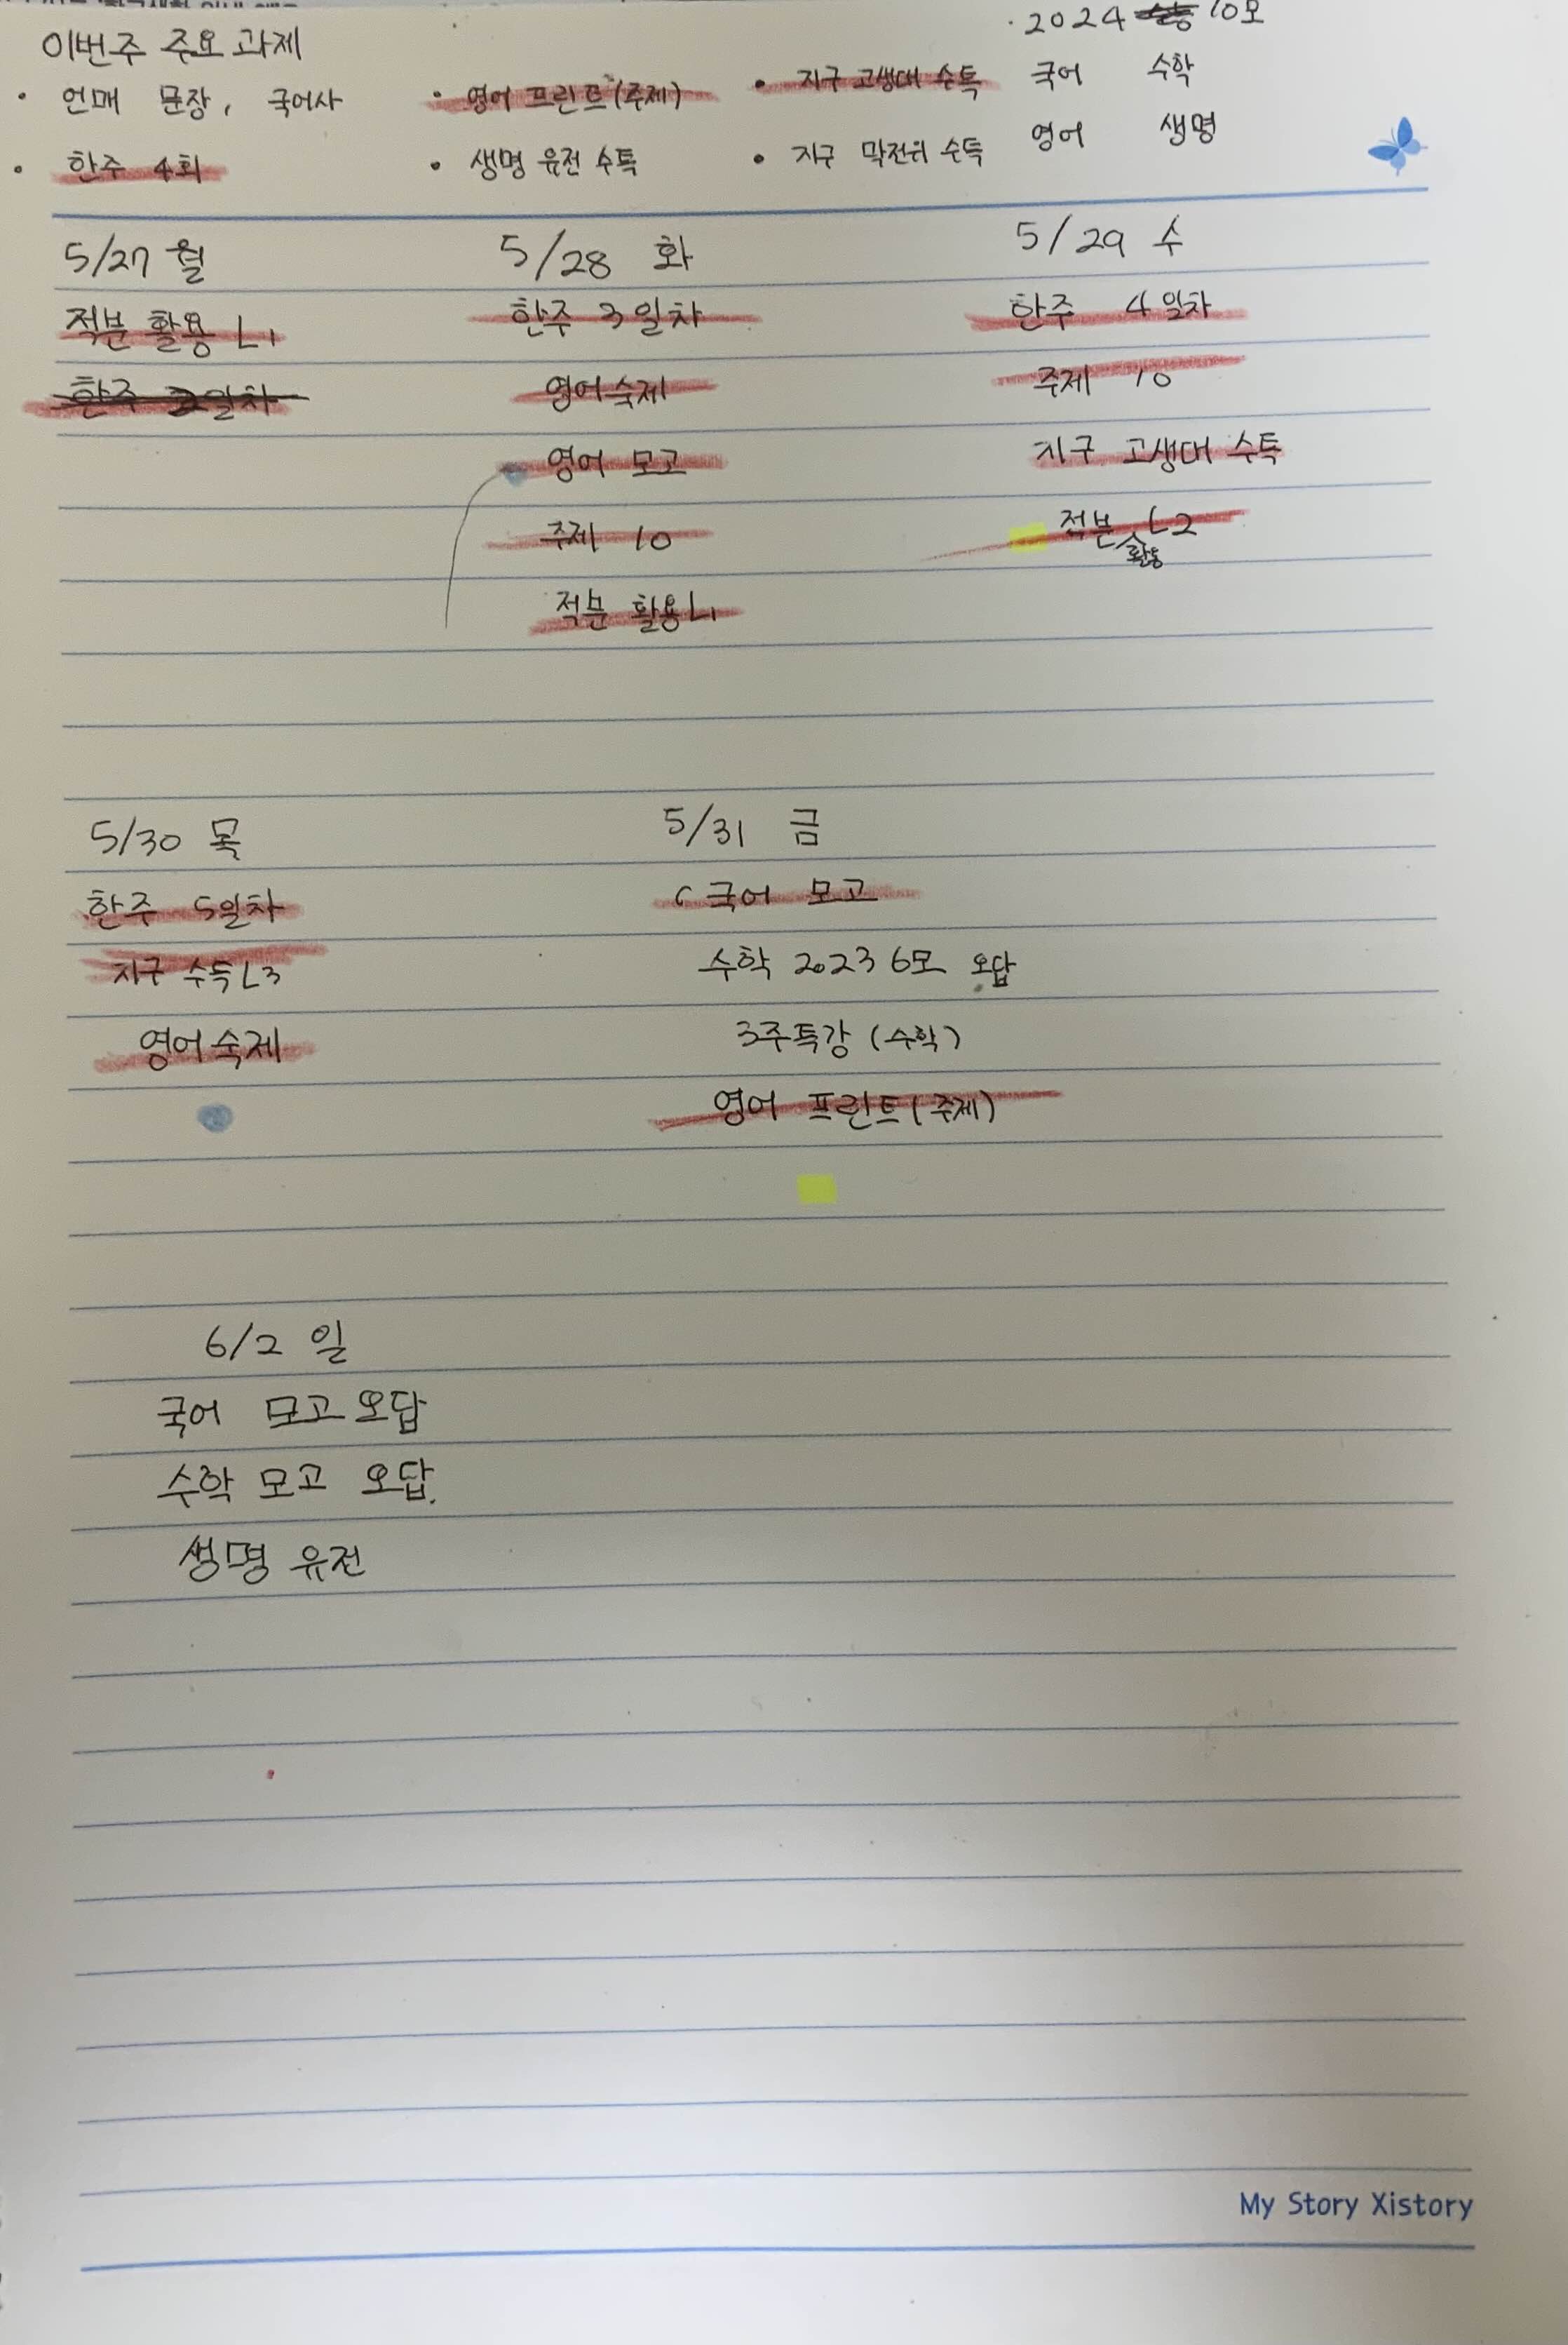 이번주 주요 과제
· 언매 문장, 국어사
· 한주 4회
· 영어 프린트(주제)
· 생명 유전 수특
· 지구 고생대 수특
· 지구 막전위 수특
· 2024 10모
국어 수학
영어 생명
5/27 월
적분 활용 L1
한주 2일차
5/28 화
한주 3일차
영어숙제
영어 모고
주제 10
적분 활용 L1
5/29 수
한주 4일차
주제 10
지구 고생대 수특
적분 활용 L2
5/30 목
한주 5일차
지구 수특 L3
영어숙제
5/31 금
국어 모고
수학 2023 6모 오답
3주특강 (수학)
영어 프린트(주제)
6/2 일
국어 모고 오답
수학 모고 오답.
생명 유전
My Story Xistory